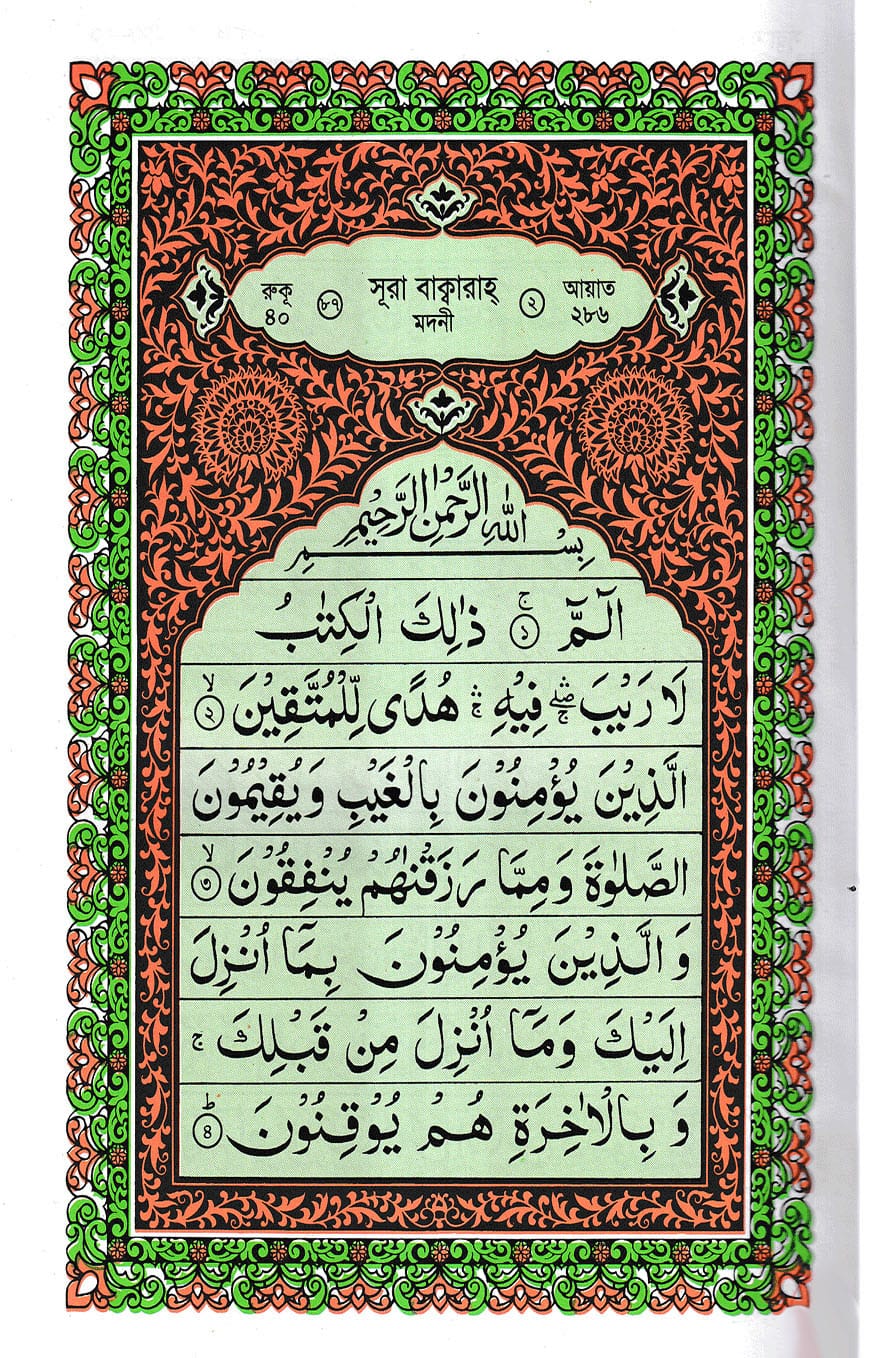 রুকু ৪০ ৮৭ সূরা বাক্বারাহ্ ২ আয়াত ২৮৬
মদনী
بِسْمِ اللهِ الرَّحْمٰنِ الرَّحِيْمِ
الٓمّٓ ۚ ১ ذٰلِكَ الْكِتٰبُ
لَا رَيْبَ ۛۖۚ فِيْهِ ۛۚ هُدًى لِّلْمُتَّقِيْنَ ۙ ২
الَّذِيْنَ يُؤْمِنُوْنَ بِالْغَيْبِ وَيُقِيْمُوْنَ
الصَّلٰوةَ وَمِمَّا رَزَقْنٰهُمْ يُنْفِقُوْنَ ۙ ৩
وَالَّذِيْنَ يُؤْمِنُوْنَ بِمَآ اُنْزِلَ
اِلَيْكَ وَمَآ اُنْزِلَ مِنْ قَبْلِكَ ۚ
وَبِالْاٰخِرَةِ هُمْ يُوْقِنُوْنَ ؕ ৪